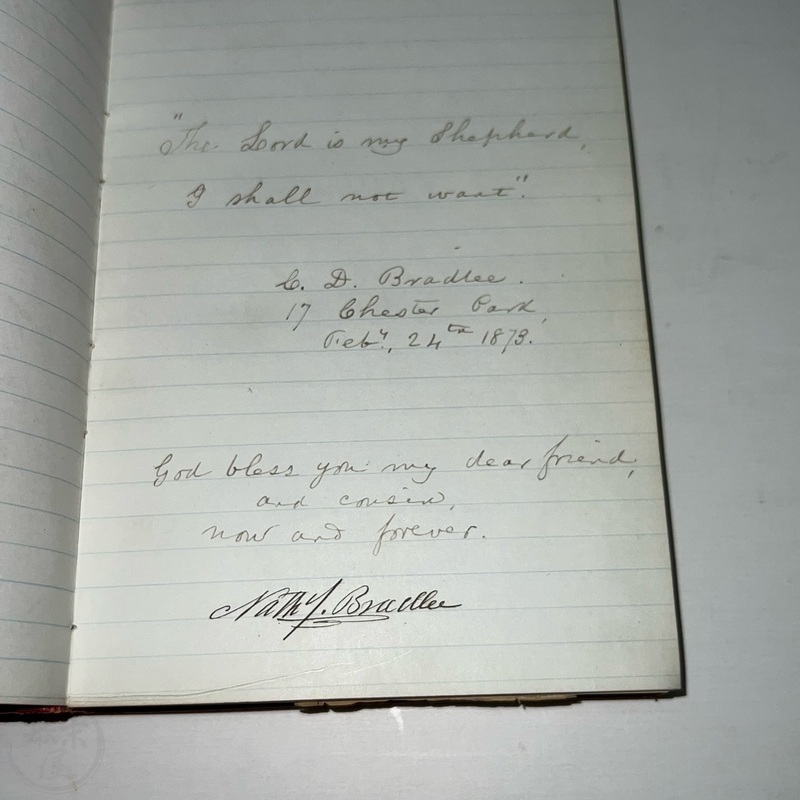 "The Lord is my Shepherd,
I shall not want".
C. D. Bradlee.
17 Chester Park,
Feby, 24th 1873.
God bless you my dear friend,
and cousin,
now and forever.
Nath J. Bradlee